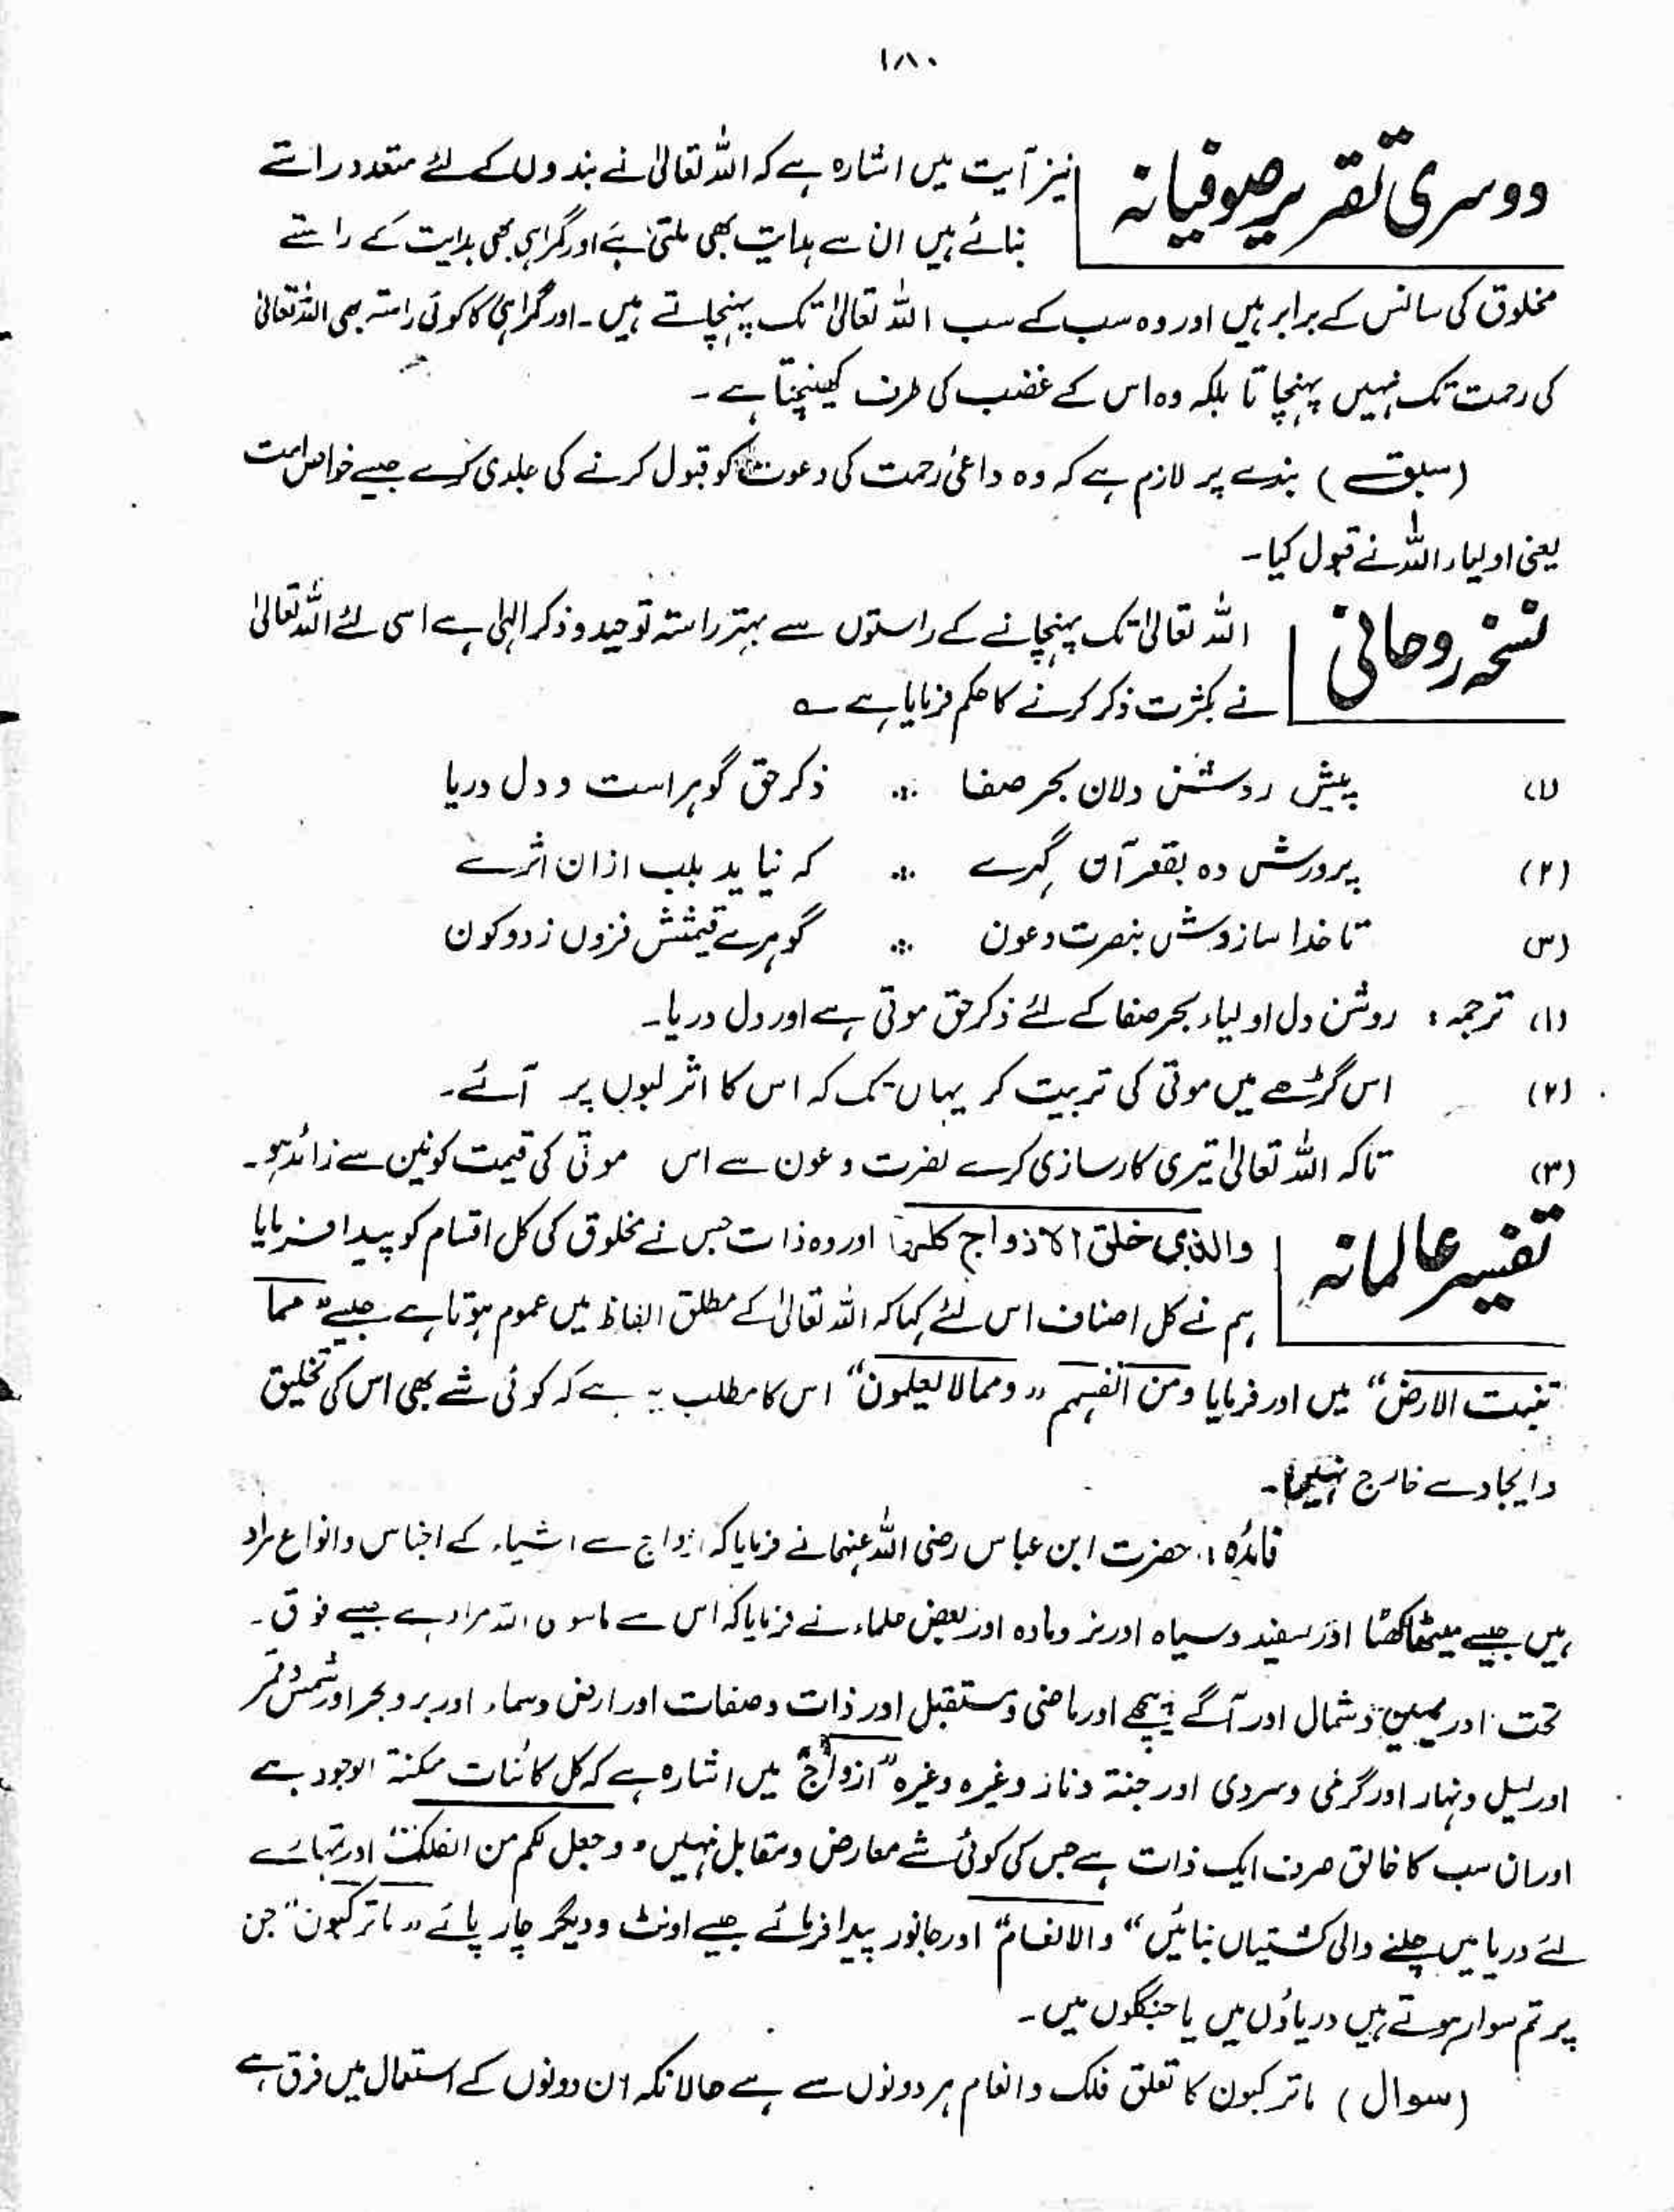 ۱۸۰
دوسری تقریر صوفیانہ
نیز آیت میں اشارہ ہے کہ اللہ تعالیٰ نے بندوں کے لئے متعدد راستے
بنائے ہیں ان سے ہدایت بھی ملتی ہے اور گمراہی بھی ہدایت کے راستے
مخلوق کی سانس کے برابر ہیں اور وہ سب کے سب اللہ تعالیٰ تک پہنچاتے ہیں۔ اور گمراہی کا کوئی راستہ بھی اللہ تعالیٰ
کی رحمت تک نہیں پہنچاتا بلکہ وہ اس کے غضب کی طرف کھینچتا ہے۔
(سبق) بندے پر لازم ہے کہ وہ داعئ رحمت کی دعوت کو قبول کرنے کی جلدی کرے جیسے خواص امت
یعنی اولیاء اللہ نے قبول کیا۔
نسخہ روحانی
اللہ تعالیٰ تک پہنچانے کے راستوں سے بہتر راستہ توحید و ذکر الہٰی ہے اسی لئے اللہ تعالیٰ
نے بکثرت ذکر کرنے کا حکم فرمایا ہے ؎
(۱) پیش روشن دلان بحر صفا ∴ ذکر حق گوہر است و دل دریا
(۲) پرورش دہ بقعر آن گہرے ∴ کہ نیاید بلب ازان اثرے
(۳) تا خدا سازدش بنصرت و عون ∴ گوہرے قیمتش فزوں ز دو کون
(۱) ترجمہ : روشن دل اولیاء بحر صفا کے لئے ذکر حق موتی ہے اور دل دریا۔
(۲) اس گڑھے میں موتی کی تربیت کر یہاں تک کہ اس کا اثر لبوں پر آئے۔
(۳) تاکہ اللہ تعالیٰ تیری کارسازی کرے نصرت و عون سے اس موتی کی قیمت کونین سے زائد ہو۔
تفسیر عالمانہ
والذی خلق الازواج کلہا اور وہ ذات جس نے مخلوق کی کل اقسام کو پیدا فرمایا
ہم نے کل اصناف اس لئے کہا کہ اللہ تعالیٰ کے مطلق الفاظ میں عموم ہوتا ہے جیسے "مما
تنبت الارض" میں اور فرمایا ومن انفسہم "ومما لا یعلمون" اس کا مطلب یہ ہے کہ کوئی شے بھی اس کی تخلیق
و ایجاد سے خارج نہیں۔
فائدہ : حضرت ابن عباس رضی اللہ عنہما نے فرمایا کہ ازواج سے اشیاء کے اجناس و انواع مراد
ہیں جیسے میٹھا کھٹا اور سفید و سیاہ اور نر و مادہ اور بعض علماء نے فرمایا کہ اس سے ماسوی اللہ مراد ہے جیسے فوق۔
تحت اور یمین و شمال اور آگے پیچھے اور ماضی و مستقبل اور ذات و صفات اور ارض و سماء اور بر و بحر اور شمس و قمر
اور لیل و نہار اور گرمی و سردی اور جنۃ و نار وغیرہ وغیرہ "ازواج" میں اشارہ ہے کہ کل کائنات ممکنۃ الوجود ہے
اور ان سب کا خالق صرف ایک ذات ہے جس کی کوئی شے معارض و مقابل نہیں "وجعل لکم من الفلک" اور تمہارے
لئے دریا میں چلنے والی کشتیاں بنائیں "والانعام" اور جانور پیدا فرمائے جیسے اونٹ و دیگر چار پائے "ما ترکبون" جن
پر تم سوار ہوتے ہیں دریاؤں میں یا جنگلوں میں۔
(سوال) ما ترکبون کا تعلق فلک و انعام ہر دونوں سے ہے حالانکہ ان دونوں کے استعمال میں فرق ہے